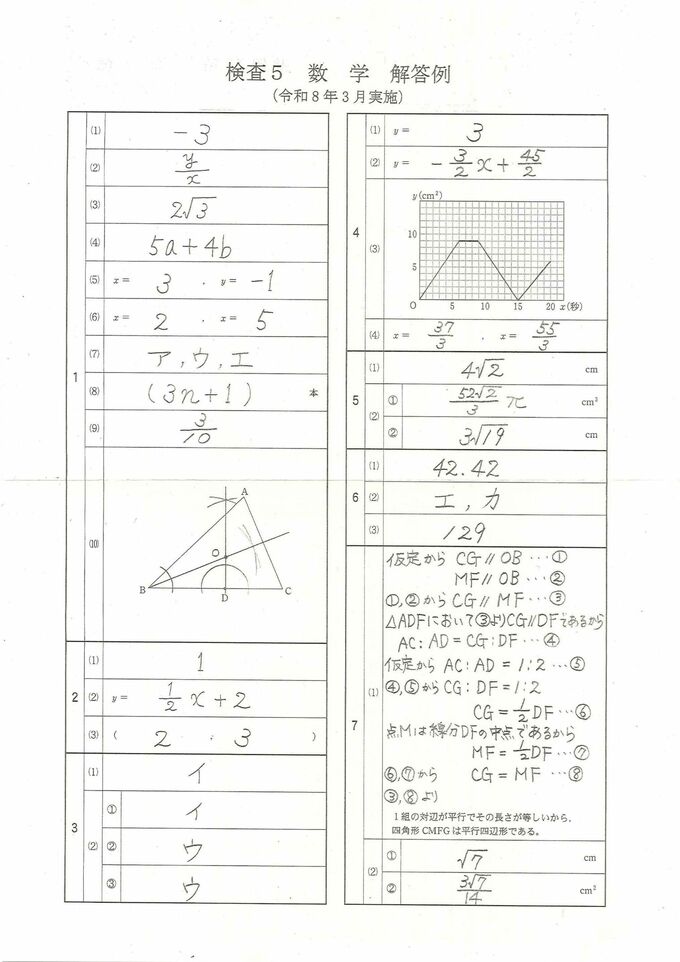 検査5 数 学 解答例
(令和8年3月実施)
1
(1) -3
(2) y/x
(3) 2√3
(4) 5a+4b
(5) x= 3 , y= -1
(6) x= 2 , x= 5
(7) ア, ウ, エ
(8) (3n+1) 本
(9) 3/10
(10)
A
O
B
D
C
2
(1) 1
(2) y= 1/2 x+2
(3) ( 2 , 3 )
3
(1) イ
(2)
① イ
② ウ
③ ウ
4
(1) y= 3
(2) y= -3/2 x+45/2
(3)
y(cm²)
10
5
O 5 10 15 20 x(秒)
(4) x= 37/3 , x= 55/3
5
(1) 4√2 cm
(2)
① 52√2/3 π cm³
② 3√19 cm
6
(1) 42.42
(2) エ, カ
(3) 129
7
(1)
仮定から CG∥OB …①
MF∥OB …②
①,②から CG∥MF …③
△ADFにおいて③よりCG∥DFであるから
AC:AD=CG:DF…④
仮定から AC:AD=1:2…⑤
④,⑤からCG:DF=1:2
CG=1/2DF…⑥
点Mは線分DFの中点であるから
MF=1/2DF…⑦
⑥,⑦から CG=MF…⑧
③,⑧より
1組の対辺が平行でその長さが等しいから,
四角形CMFGは平行四辺形である。
(2)
① √7 cm
② 3√7/14 cm²